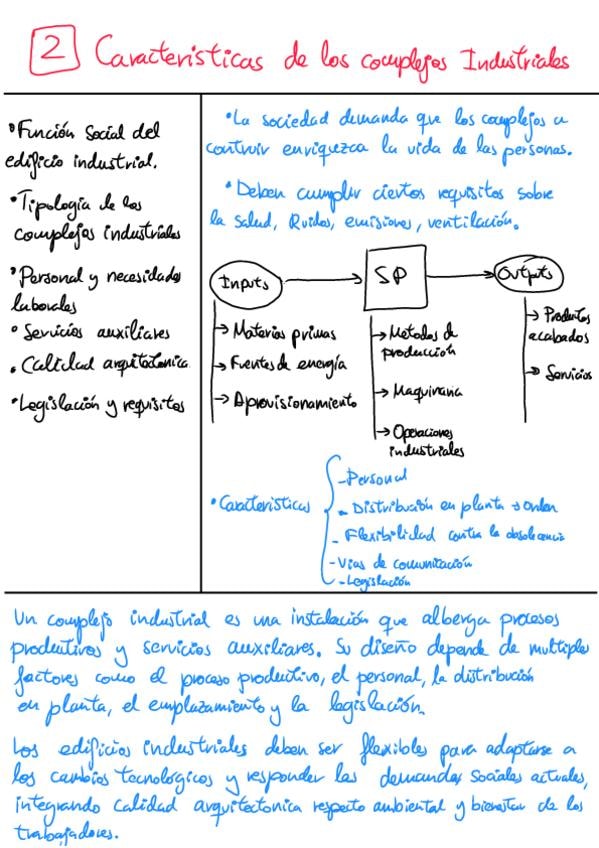 2 Caracteristicas de los complejos Industriales
• Función Social del
edificio industrial.
• Tipología de los
complejos industriales
• Personal y necesidades
laborales
• Servicios auxiliares
• Calidad arquitectonica
• Legislación y requisitos
• La sociedad demanda que los complejos a
contruir enriquezca la vida de las personas.
• Deben cumplir ciertos requisitos sobre
la salud, Ruidos, emisiones, ventilación.
Inputs → SP → Outputs
→ Materias primas
→ Fuentes de energía
→ Aprovisionamiento
→ Metodos de
producción
→ Maquinaria
→ Operaciones
industriales
→ Productos
acabados
→ Servicios
• Caracteristicas
- Personal
- Distribución en planta → orden
- Flexibilidad contra la obsolecencia
- Vias de comunicación
- Legislación
Un complejo industrial es una instalación que alberga procesos
productivos y servicios auxiliares. Su diseño depende de multiples
factores como el proceso productivo, el personal, la distribución
en planta, el emplazamiento y la legislación.
Los edificios industriales deben ser flexibles para adaptarse a
los cambios tecnologicos y responder las demandas sociales actuales,
integrando calidad arquitectonica respeto ambiental y bienestar de los
trabajadores.